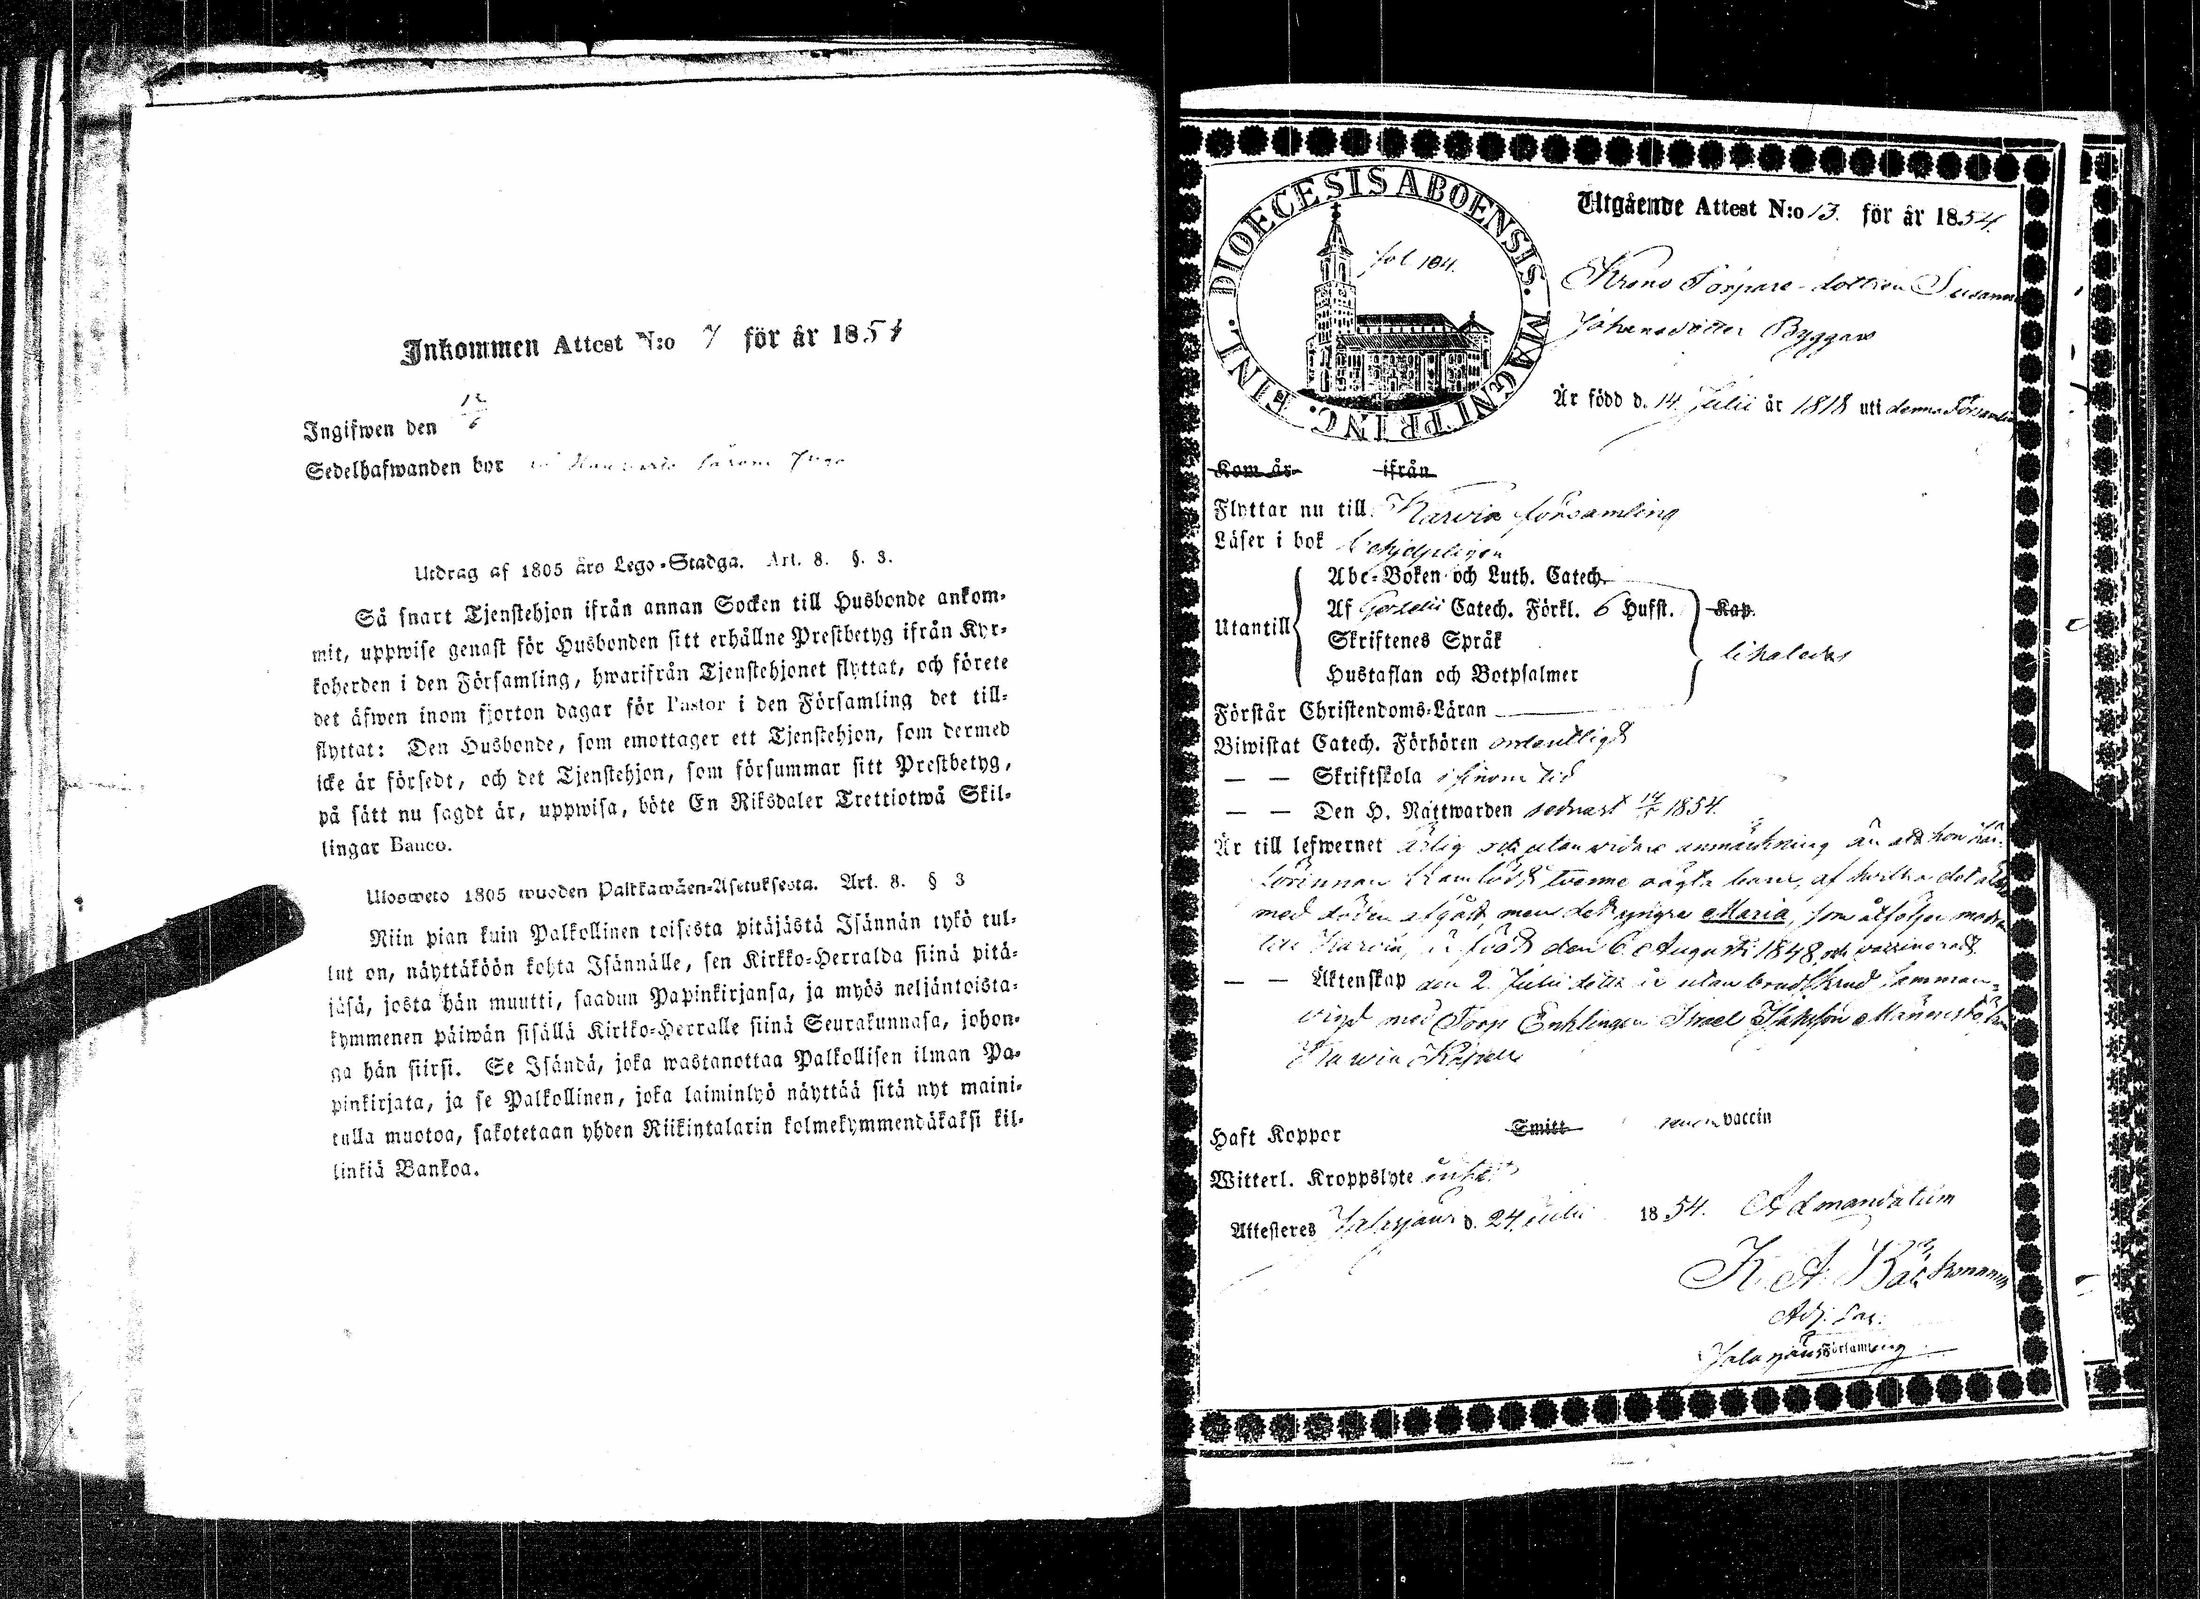 Inkommen Attest N:o 7 för år 1854
Ingifwen den
Sedelhafwanden bor
Utdrag af 1805 års Lego-Stadga. Art. 8. §. 3.
Så snart Tjenstehjon ifrån annan Socken till Husbonde ankom-
mit, uppwise genast för Husbonden sitt erhållne Prestbetyg ifrån Kyr-
koherden i den Församling, hwarifrån Tjenstehjonet flyttat, och förete
det äfwen inom fjorton dagar för Pastor i den Församling det till-
flyttat: Den Husbonde, som emottager ett Tjenstehjon, som dermed
icke är försedt, och det Tjenstehjon, som försummar sitt Prestbetyg,
på sätt nu sagdt är, uppwisa, böte En Riksdaler Trettiotwå Skil-
lingar Banco.
Ulosweto 1805 wuoden Palkkawäen-Asetuksesta. Art. 8. § 3
Niin pian kuin Palkollinen toisesta pitäjästä Isännän tykö tul-
lut on, näyttäköön kohta Isännälle, sen Kirkko-Herralda siinä pitä-
jäsä, josta hän muutti, saadun Papinkirjansa, ja myös neljäntoista-
kymmenen päiwän sisällä Kirkko-Herralle siinä Seurakunnasa, johon-
ga hän siirsi. Se Isändä, joka wastanottaa Palkollisen ilman Pa-
pinkirjata, ja se Palkollinen, joka laiminlyö näyttää sitä nyt maini-
tulla muotoa, sakotetaan yhden Riikintalarin kolmekymmendäkaksi kil-
linkiä Bankoa.
DIOECESIS ABOENSIS. MAGNI PRINC. FINL.
fol 104.
Utgående Attest N:o 13. för år 1854.
Krono Torpare-dottren Susanna
Johansdotter Byggars
Är född d. 14 Julii år 1818 uti denna Församling
Kom år ifrån
Flyttar nu till Karvia församling
Läser i bok behjelpligen
Abc-Boken och Luth. Catech.
Utantill Af Gezelii Catech. Förkl. 6 Hufst. Kap.
Skriftenes Språk
likaledes
Hustaflan och Botpsalmer
Förstår Christendoms-Läran
Biwistat Catech. Förhören ordentligt
— — Skriftskola i sinom tid
— — Den H. Nattwarden sednast 1854.
Är till lefwernet ärlig och utan vidare anmärkning än att hon här-
förinnan framfödt tvenne oägta barn, af hvilka det äldre
med döden afgått, men det yngre Maria, som åtföljer modren
till Karvia, är född den 6 Augusti 1848 och vaccinerad.
— — Äktenskap den 2 Julii detta år utan brudskrud samman-
vigd med Torp Enklingen Israel
Karvia Kapell
Haft Koppor Smitt genom vaccin
Witterl. Kroppslyte
Attesteres Jalasjärvi d. 24 Julii 1854. Ad mandatum
K. A. Bäckman
Adj. Sac.
Församling